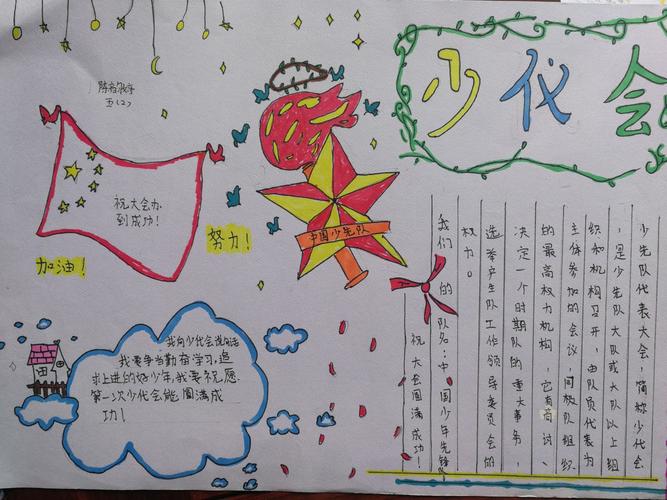 少代会
五(2)
祝大会办
到成功！
加油！
努力！
中国少先队
我向少代会说句话
我要争当勤奋学习，追
求上进的好少年，我要祝愿
第一次少代会能圆满成
功！
少先队代表大会，简称少代会
，是少先队大队或大队以上组
织和机构召开，由队员代表为
主体参加的会议，同级队组织
的最高权力机构，它有商讨、
决定一个时期队的重大事务，
选举产生队工作领导委员会的
权力。
我们的队名：中国少年先锋队
祝大会圆满成功！